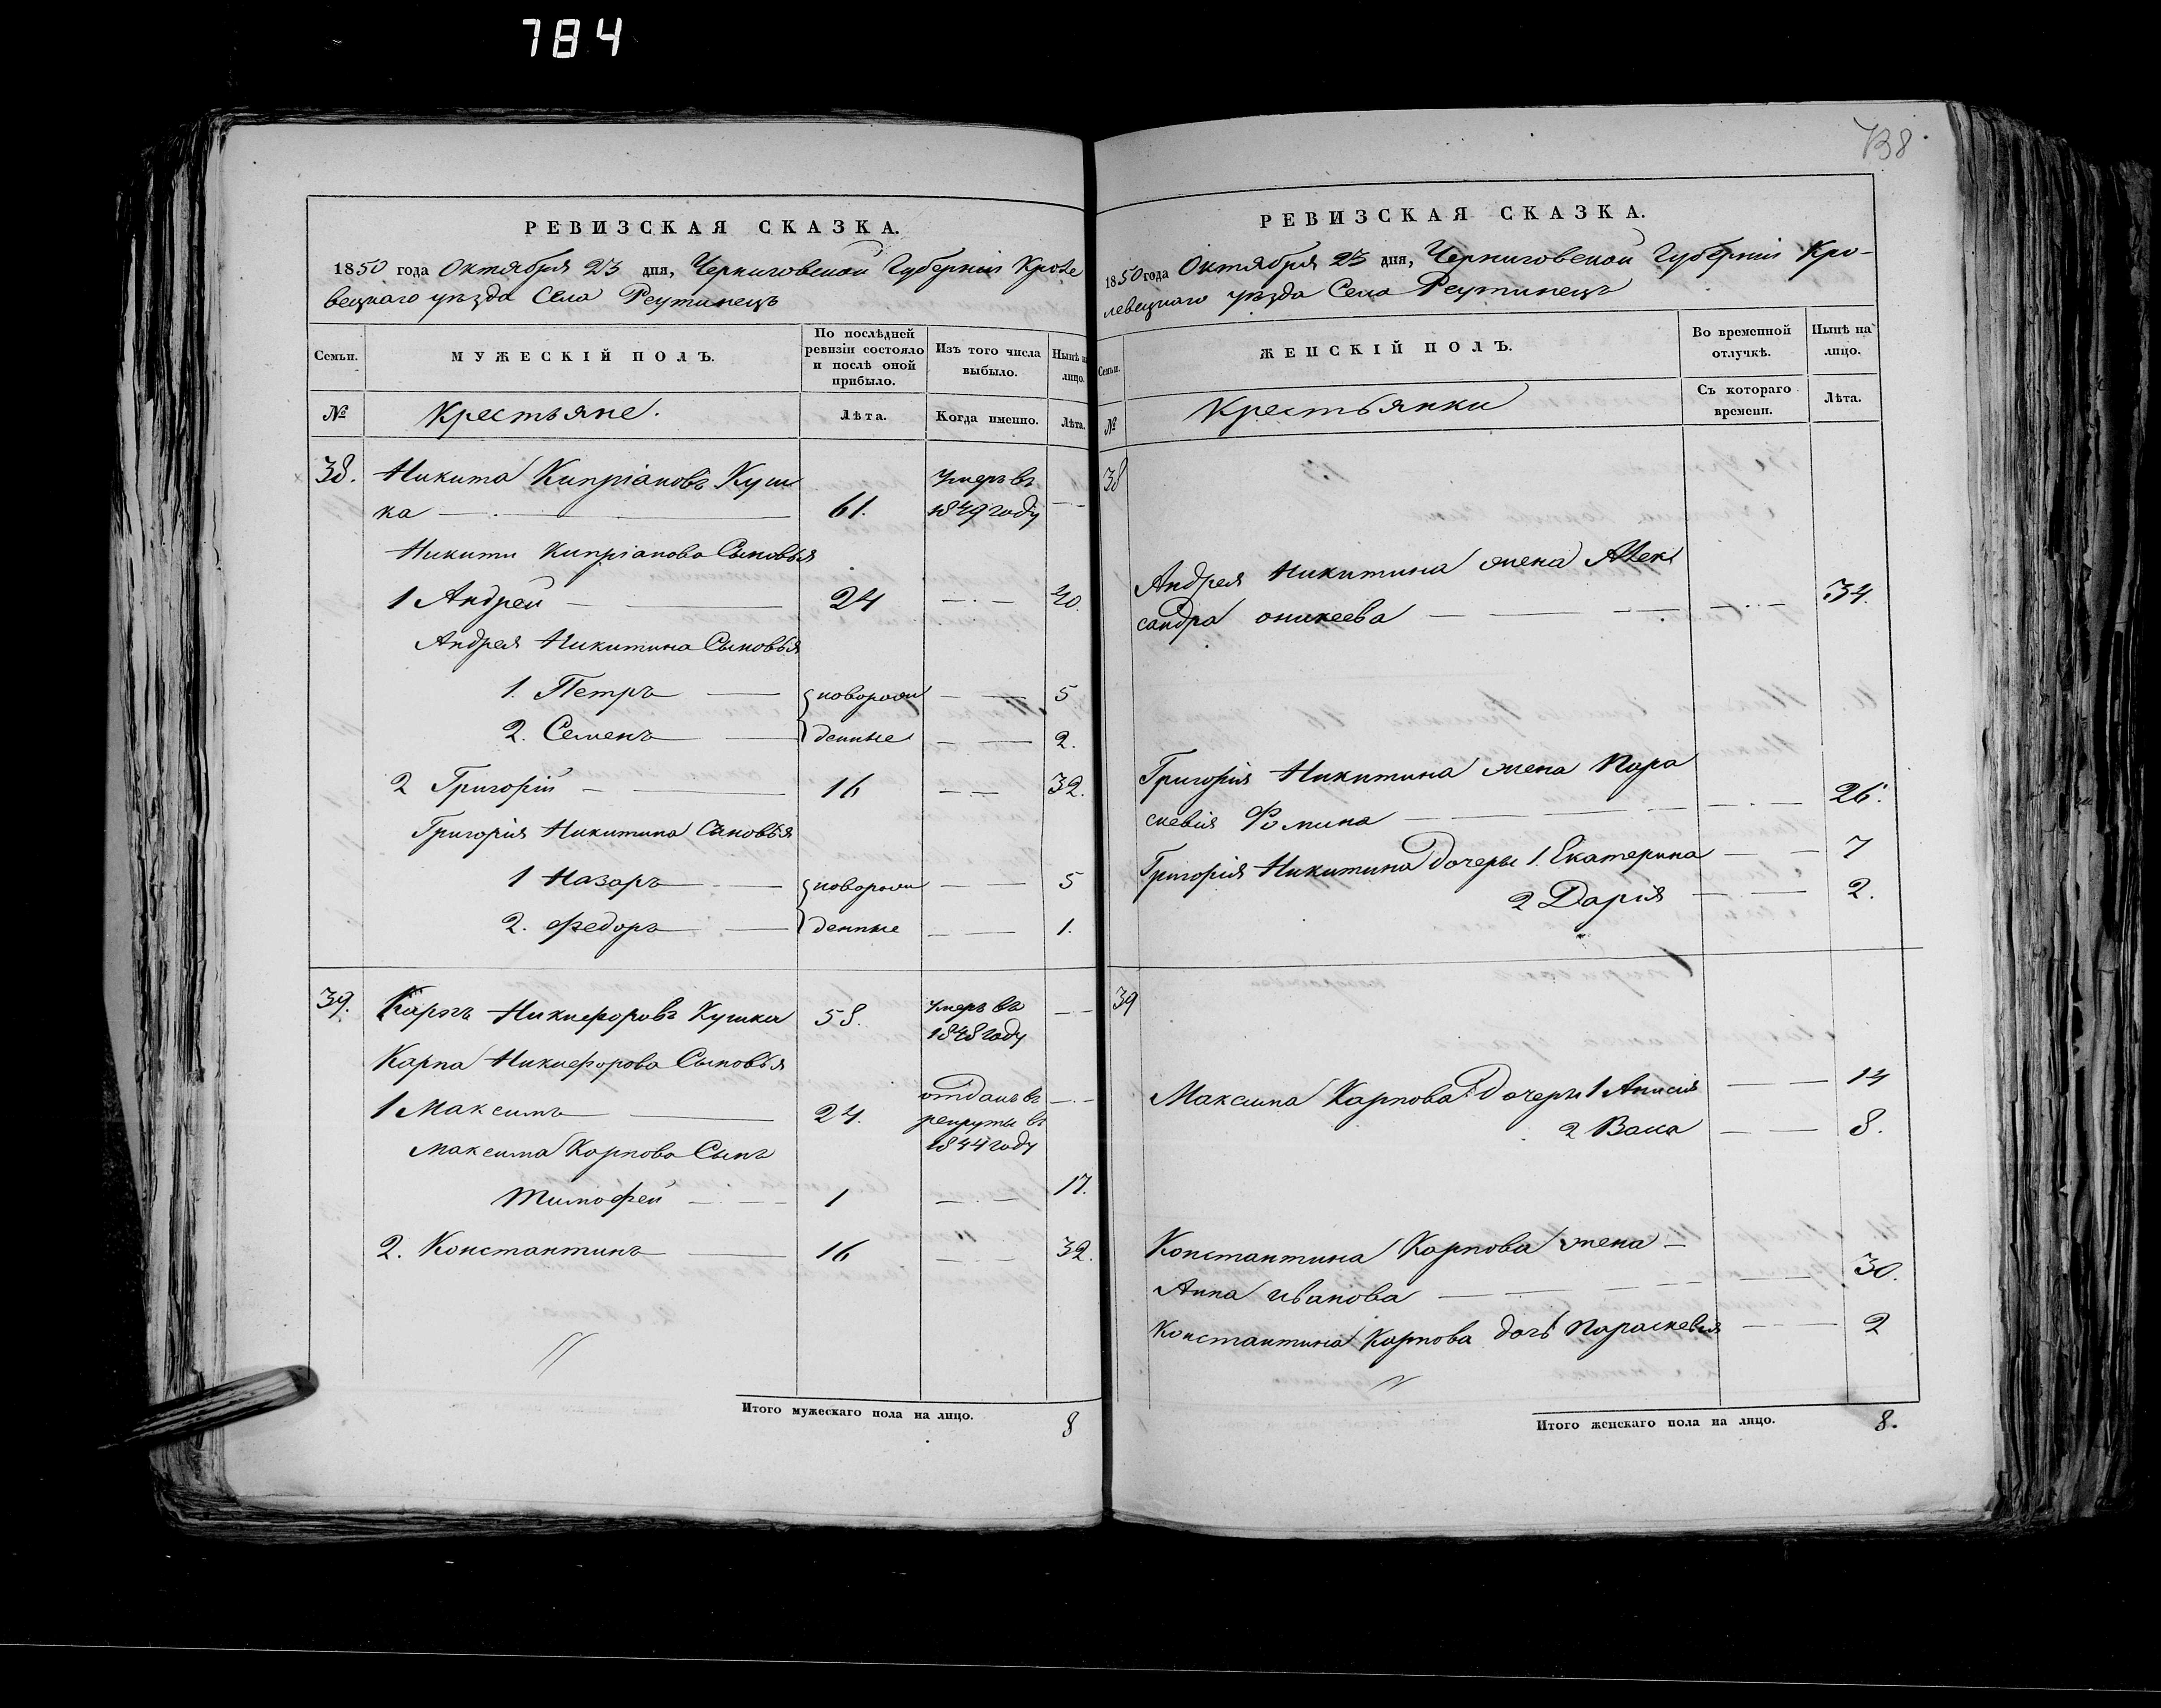 784
738
РЕВИЗСКАЯ СКАЗКА.
1850 года Октября 23 дня, Черниговской Губерніи Кроле
вецкаго уѣзда Села Реутинецъ
Семьи.
МУЖЕСКІЙ ПОЛЪ.
По послѣдней
ревизіи состояло
и послѣ оной
прибыло.
Изъ того числа
выбыло.
Нынѣ н
лицо.
№
Крестьяне.
Лѣта.
Когда именно.
Лѣта.
38. Никита Кипріановъ Куш
ка — 61. Умеръ въ 1849 году — —
Никиты Кипріанова Сыновья
1 Андрей — 24 — — 40.
Андрея Никитина Сыновья
1. Петръ — новорож — — 5
2. Семенъ — денные — — 2.
2 Григорій — 16 — — 32.
Григорія Никитина Сыновья
1 Назаръ — новорож — — 5
2. Федоръ — денные — — 1.
39. Карпъ Никифоровъ Кушка 58. Умеръ въ 1848 году — —
Карпа Никифорова Сыновья
1 Максимъ — 24. отданъ въ рекруты въ 1844 году — —
Максима Карпова Сынъ
Тимофей — 1 — — 17.
2. Константинъ — 16 — — 32.
Итого мужескаго пола на лицо. 8
РЕВИЗСКАЯ СКАЗКА.
1850 года Октября 23 дня, Черниговской Губерніи Кро-
левецкаго уѣзда Села Реутинецъ
Семьи.
ЖЕНСКІЙ ПОЛЪ.
Во временной
отлучкѣ.
Нынѣ на
лицо.
№
Крестьянки
Съ котораго
времени.
Лѣта.
38
Андрея Никитина жена Алек
сандра оникеева — — 34.
Григорія Никитина жена Пара
скевія Фомина — — 26.
Григорія Никитина Дочеры 1. Екатерина — — 7
2 Дарія — — 2.
39
Максима Карпова Дочеры 1 Анисія — — 14
2 Васса — — 8.
Константина Карпова жена —
Анна иванова — — 30.
Константина Карпова дочь Параскевія — — 2
Итого женскаго пола на лицо. 8.